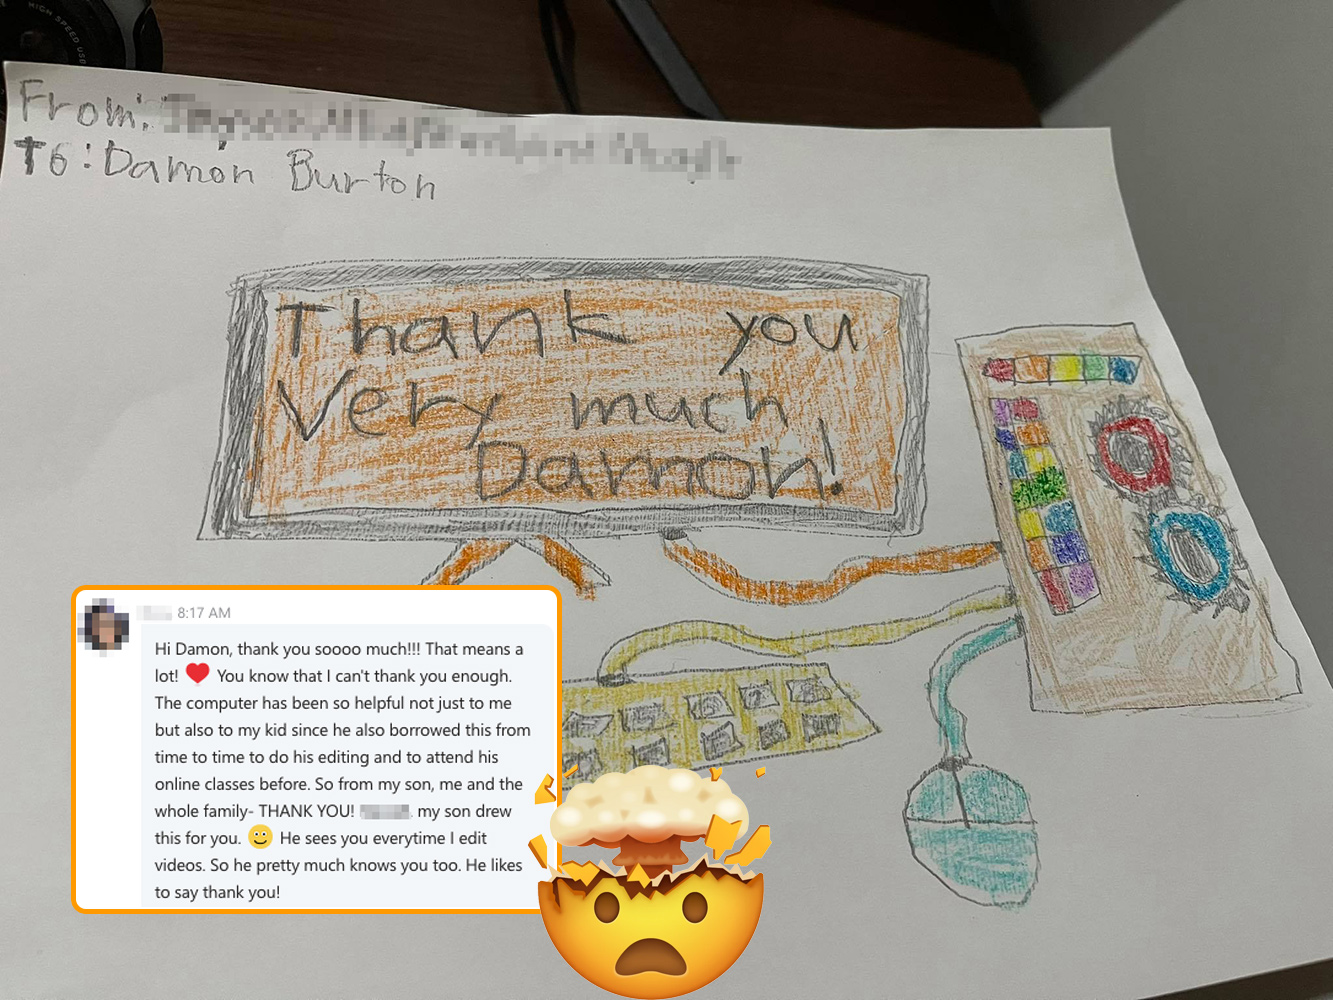 HIGH SPEED USB
From:
To: Damon Burton
Thank you
Very much
Damon!
8:17 AM
Hi Damon, thank you soooo much!!! That means a
lot! ❤️ You know that I can't thank you enough.
The computer has been so helpful not just to me
but also to my kid since he also borrowed this from
time to time to do his editing and to attend his
online classes before. So from my son, me and the
whole family- THANK YOU! my son drew
this for you. 🙂 He sees you everytime I edit
videos. So he pretty much knows you too. He likes
to say thank you!